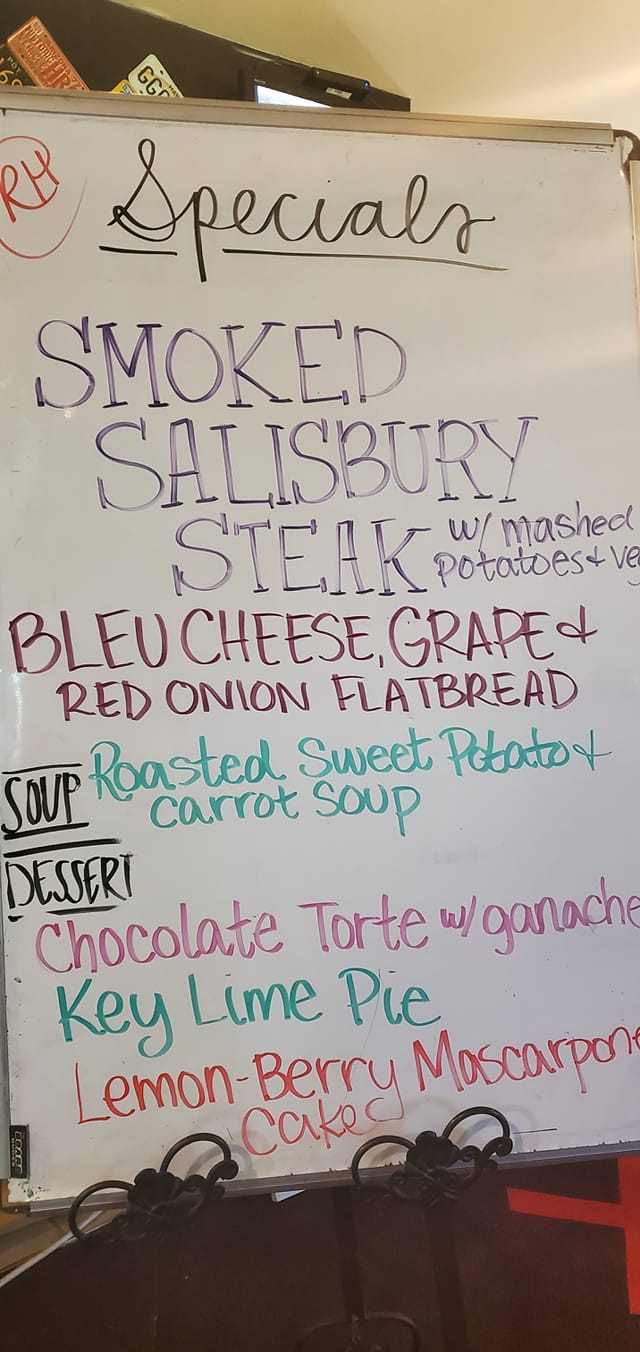 RH
Specials
SMOKED
SALISBURY
STEAK w/ mashed
potatoes + ve
BLEU CHEESE, GRAPE &
RED ONION FLATBREAD
SOUP Roasted Sweet Potato &
Carrot Soup
DESSERT
Chocolate Torte w/ ganache
Key Lime Pie
Lemon-Berry Mascarpone
Cake